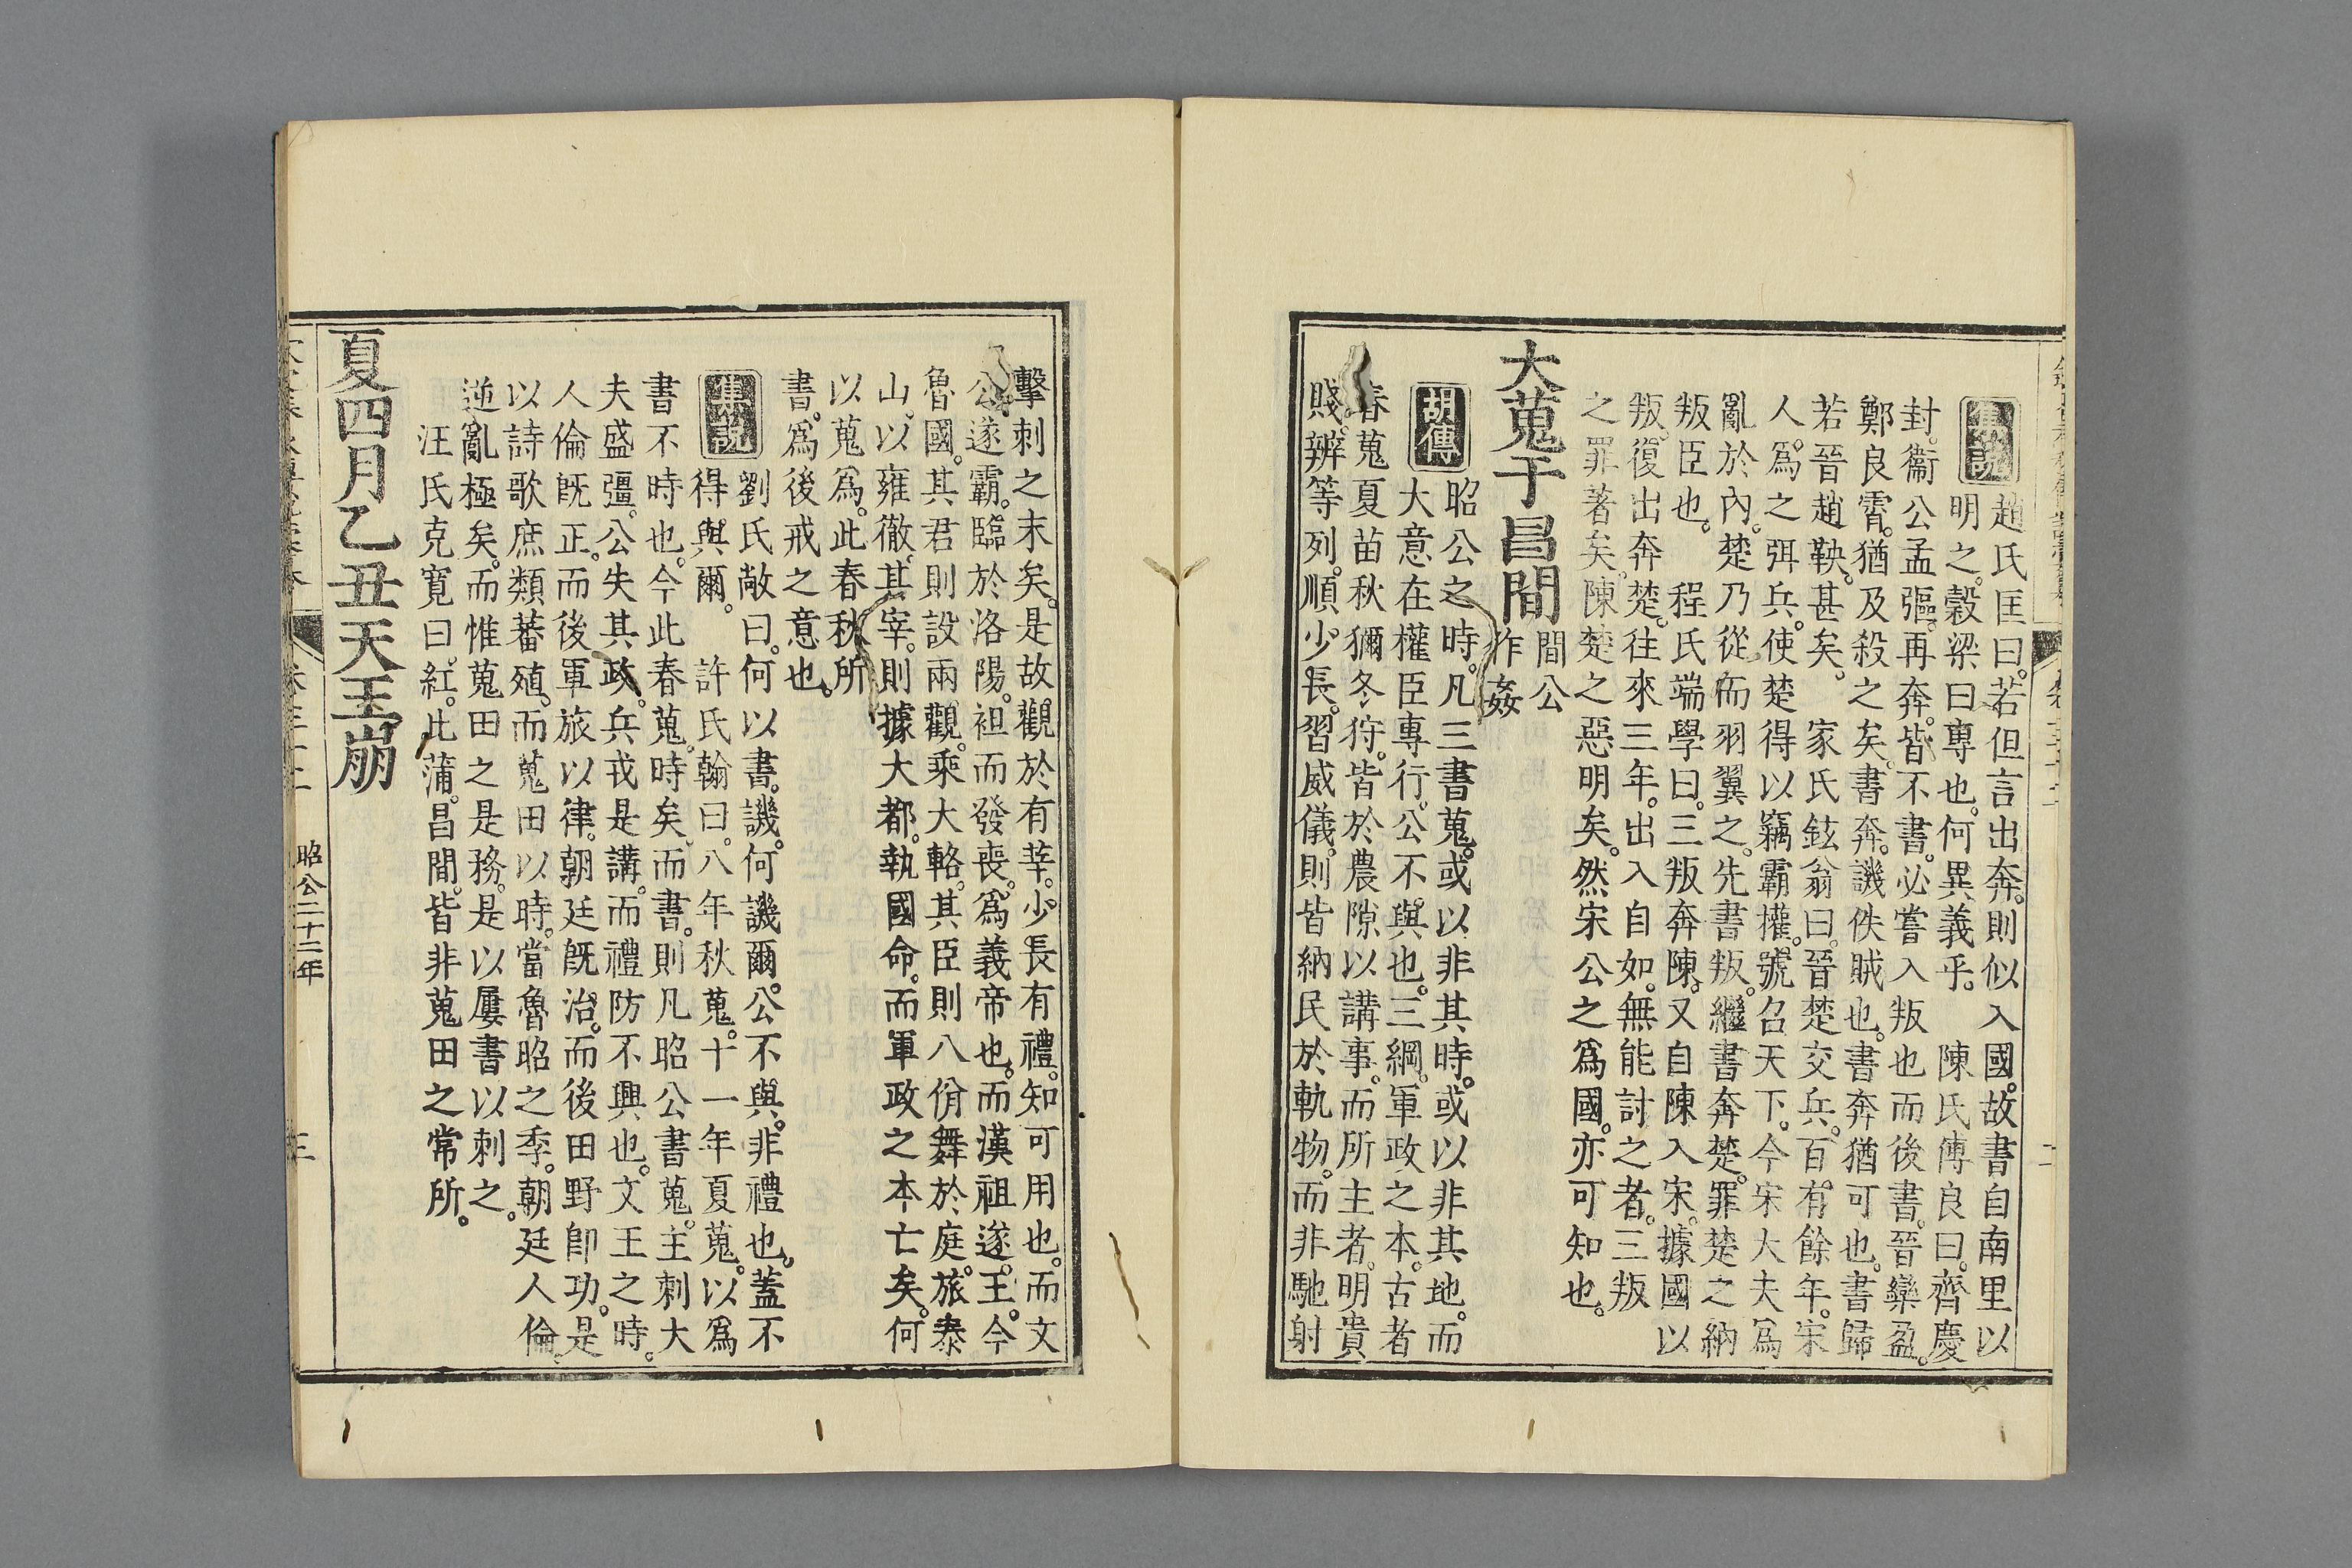 集說
趙氏匡曰。若但言出奔。則似入國。故書自南里以
明之。穀梁曰專也。何異義乎。 陳氏傅良曰。齊慶
封。衞公孟彄。再奔。皆不書。必嘗入叛也而後書。晉欒盈。
鄭良霄。猶及殺之矣。書奔。譏佚賊也。書奔猶可也。書歸
若晉趙鞅。甚矣。 家氏鉉翁曰。晉楚交兵。百有餘年。宋
人爲之弭兵。使楚得以竊霸權。號召天下。今宋大夫爲
亂於內。楚乃從而羽翼之。先書叛。繼書奔楚。罪楚之納
叛臣也。 程氏端學曰。三叛奔陳。又自陳入宋。據國以
叛。復出奔楚。往來三年。出入自如。無能討之者。三叛
之罪著矣。陳楚之惡明矣。然宋公之爲國。亦可知也。
大蒐于昌間
間公
作姦
胡傳
昭公之時。凡三書蒐。或以非其時。或以非其地。而
大意在權臣專行。公不與也。三綱。軍政之本。古者
春蒐夏苗秋獮冬狩。皆於農隙以講事。而所主者。明貴
賤。辨等列。順少長。習威儀。則皆納民於軌物。而非馳射
擊刺之末矣。是故觀於有莘。少長有禮。知可用也。而文
公遂霸。臨於洛陽。袒而發喪。爲義帝也。而漢祖遂王。今
魯國。其君則設兩觀。乘大輅。其臣則八佾舞於庭。旅泰
山。以雍徹。其宰。則據大都。執國命。而軍政之本亡矣。何
以蒐爲。此春秋所
書。爲後戒之意也。
集說
劉氏敞曰。何以書。譏。何譏爾。公不與。非禮也。蓋不
得與爾。 許氏翰曰。八年秋蒐。十一年夏蒐。以爲
書不時也。今此春蒐。時矣。而書。則凡昭公書蒐。主刺大
夫盛彊。公失其政。兵戎是講。而禮防不興也。文王之時。
人倫旣正。而後軍旅以律。朝廷旣治。而後田野卽功。是
以詩歌庶類蕃殖。而蒐田以時。當魯昭之季。朝廷人倫。
逆亂極矣。而惟蒐田之是務。是以屢書以刺之。
汪氏克寬曰。紅。此蒲。昌間。皆非蒐田之常所。
夏四月乙丑天王崩
昭公二十二年